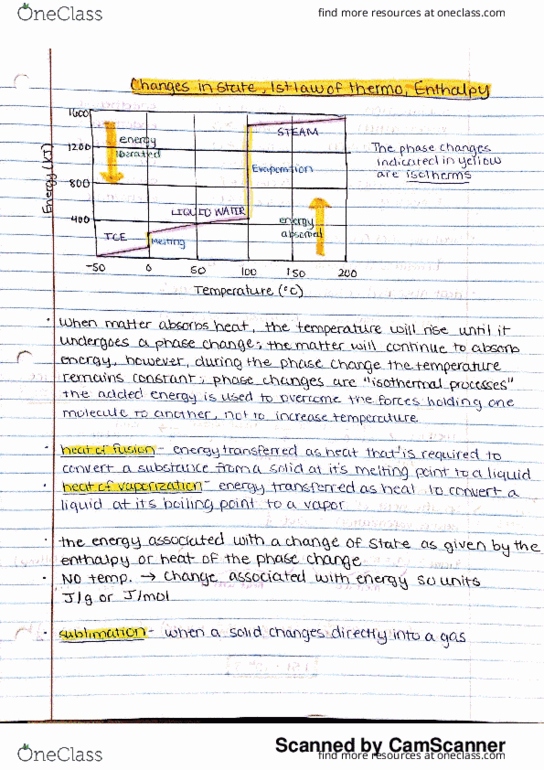 OneClass
find more resources at oneclass.com
Changes in state, 1st law of thermo, Enthalpy
1600
1200
800
400
Energy (kJ)
energy
liberated
STEAM
Evaporation
LIQUID WATER
ICE
Melting
energy
absorbed
-50 0 50 100 150 200
Temperature (°C)
The phase changes
indicated in yellow
are isotherms
· When matter absorbs heat, the temperature will rise until it
undergoes a phase change; the matter will continue to absorb
energy, however, during the phase change the temperature
remains constant; phase changes are "isothermal processes"
the added energy is used to overcome the forces holding one
molecule to another, not to increase temperature.
· heat of fusion - energy transferred as heat that is required to
convert a substance from a solid at it's melting point to a liquid
· heat of vaporization - energy transferred as heat to convert a
liquid at its boiling point to a vapor
· the energy associated with a change of state as given by the
enthalpy or heat of the phase change.
· NO temp. → change associated with energy so units
J/g or J/mol
· sublimation - when a solid changes directly into a gas
Scanned by CamScanner
OneClass
find more resources at oneclass.com